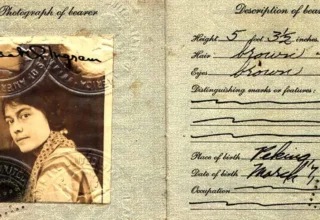 Photograph of bearer
Description of bear
Height 5 feet 3½ inches
Hair brown
Eyes brown
Distinguishing marks or features:
Place of birth Peking
Date of birth March
Occupation